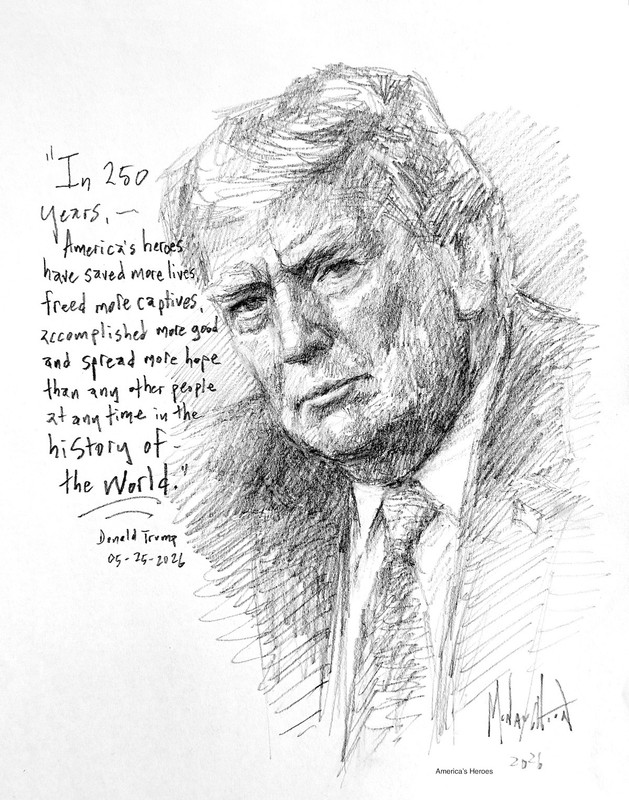 "In 250
years, —
"America's heroes
have saved more lives,
freed more captives,
accomplished more good
and spread more hope
than any other people
at any time in the
history of
the World."
Donald Trump
05-25-2026
2026
America's Heroes